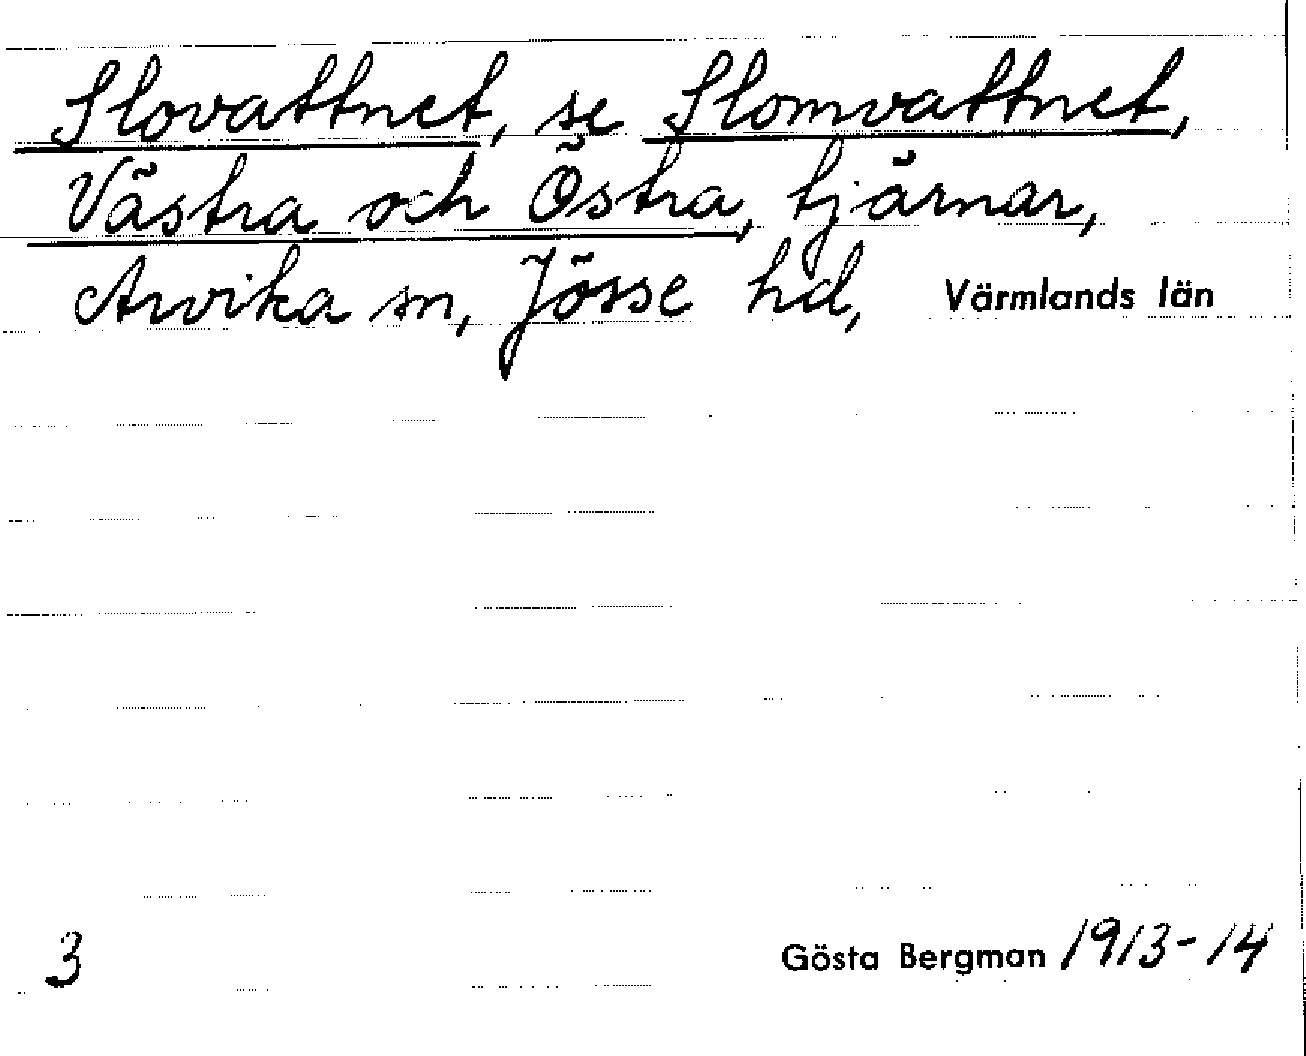 Slovattnet, se Slomvattnet,
Västra och Östra, tjärnar,
Arvika sn, Jösse hd, Värmlands län
3 Gösta Bergman 1913-14